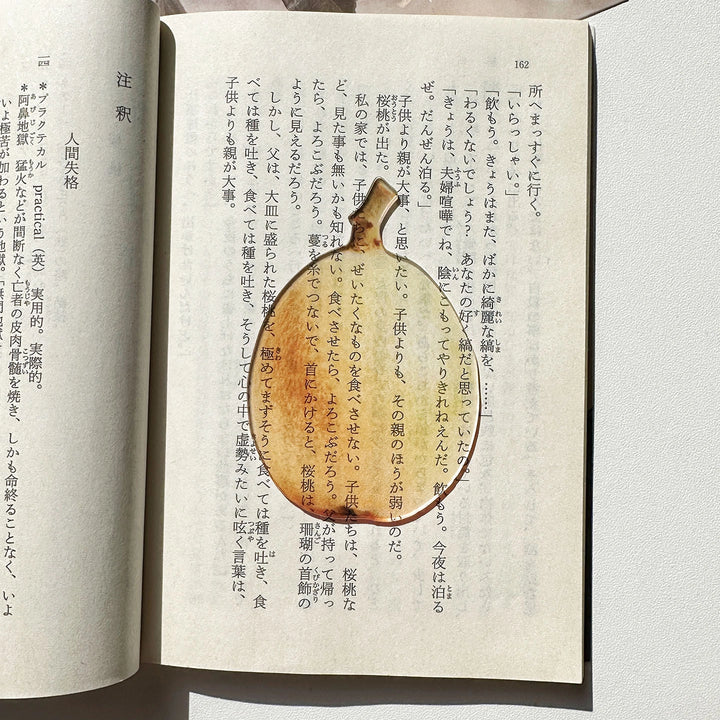 162
所へまっすぐに行く。
「いらっしゃい。」
「飲もう。きょうはまた、ばかに綺麗な縞を、……」
「わるくないでしょう？　あなたの好く縞だと思っていたの。」
「きょうは、夫婦喧嘩でね、陰にこもってやりきれねえんだ。飲もう。今夜は泊る
ぜ。だんぜん泊る。」
子供より親が大事、と思いたい。子供よりも、その親のほうが弱いのだ。
桜桃が出た。
私の家では、子供たちに、ぜいたくなものを食べさせない。子供たちは、桜桃な
ど、見た事も無いかも知れない。食べさせたら、よろこぶだろう。父が持って帰っ
たら、よろこぶだろう。蔓を糸でつないで、首にかけると、桜桃は、珊瑚の首飾の
ように見えるだろう。
しかし、父は、大皿に盛られた桜桃を、極めてまずそうに食べては種を吐き、食
べては種を吐き、食べては種を吐き、そうして心の中で虚勢みたいに呟く言葉は、
子供よりも親が大事。
注釈
人間失格
一四
＊プラクテカル　practical（英）　実用的。実際的。
＊阿鼻地獄　猛火などが間断なく亡者の皮肉骨髄を焼き、しかも命終ることなく、いよ
いよ極苦が加わるという地獄。